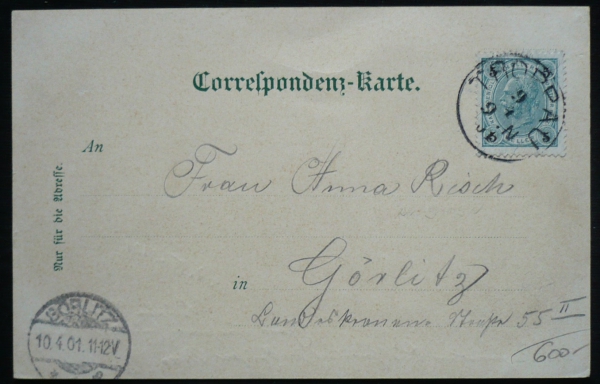 Correspondenz-Karte.
TROPPAU
9 4
An
Frau Anna Risch
Nur für die Adresse.
in Görlitz
Landeskronen Straße 55 II
GÖRLITZ
10.4.01.11-12V
600-